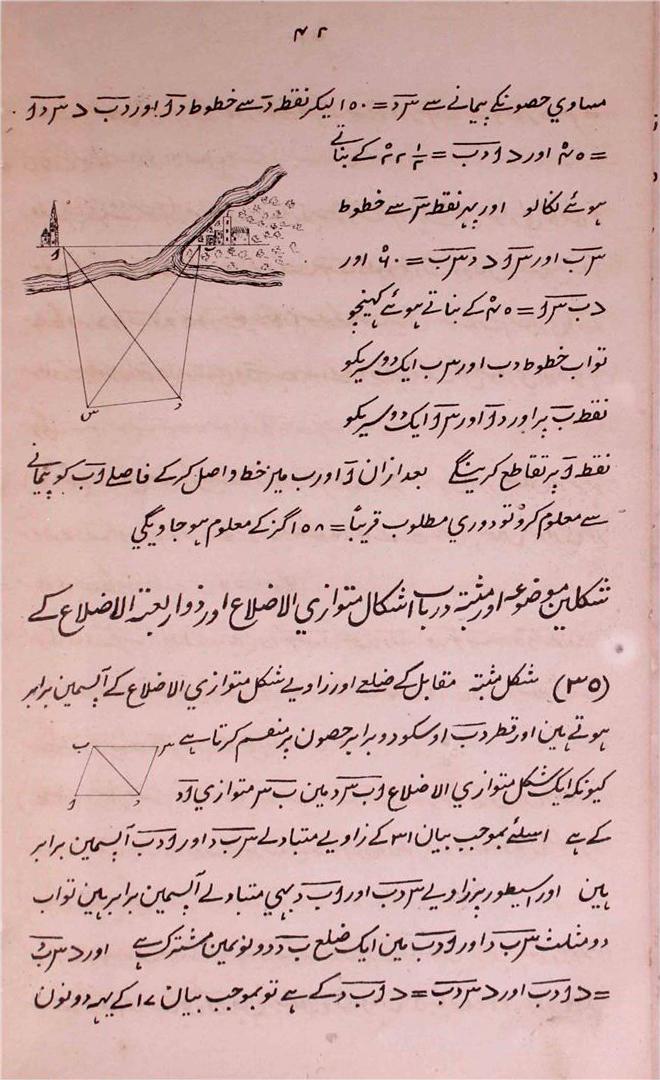 ۴۲
مساوي حصونکے پیمانے سے س د = ۱۵۰ لیکر نقطہ د سے خطوط د و اور د ب > س د و
= ۴۵ اور > و د ب = ۴۲ ۱/۲ کے بناتے
ہوئے نکالو اور پہر نقطہ س سے خطوط
س ب اور س و > د س ب = ۶۰ اور
> ب س و = ۴۵ کے بناتے ہوئے کہینچو
تو اب خطوط د ب اور س ب ایک دوسریکو
نقطہ ب پر اور د و اور س و ایک دوسریکو
نقطہ و پر تقاطع کرینگے بعد ازان و اور ب مین خط واصل کر کے فاصلے و ب کو پیمانے
سے معلوم کرو تو دوري مطلوب قریباً = ۱۵۸ گز کے معلوم ہو جاویگي
شکلین موضوعہ اور مثبتہ درباب اشکال متوازي الاضلاع اور ذو اربعتہ الاضلاع کے
(۳۵) شکل مثبتہ مقابل کے ضلعے اور زاویے شکل متوازي الاضلاع کے آپسمین برابر
ہوتے ہین اور قطر د ب اوسکو دو برابر حصون پر منقسم کرتا ہے
کیونکہ ایک شکل متوازي الاضلاع و ب س د مین ب س متوازي و د
کے ہے اسلئے بموجب بیان ۳۱ کے زاویے متبادلے س ب د اور و د ب آپسمین برابر
ہین اور اسیطور پر زاویے س د ب اور و ب د بہي متبادلے آپسمین برابر ہین تو اب
دو مثلث س ب د اور و د ب مین ایک ضلع ب د دونومین مشترک ہے اور > س ب د
= > و د ب اور > س د ب = > و ب د کے ہے تو بموجب بیان ۱۷ کے یہہ دونون
و
س
د
ب
س
و
د